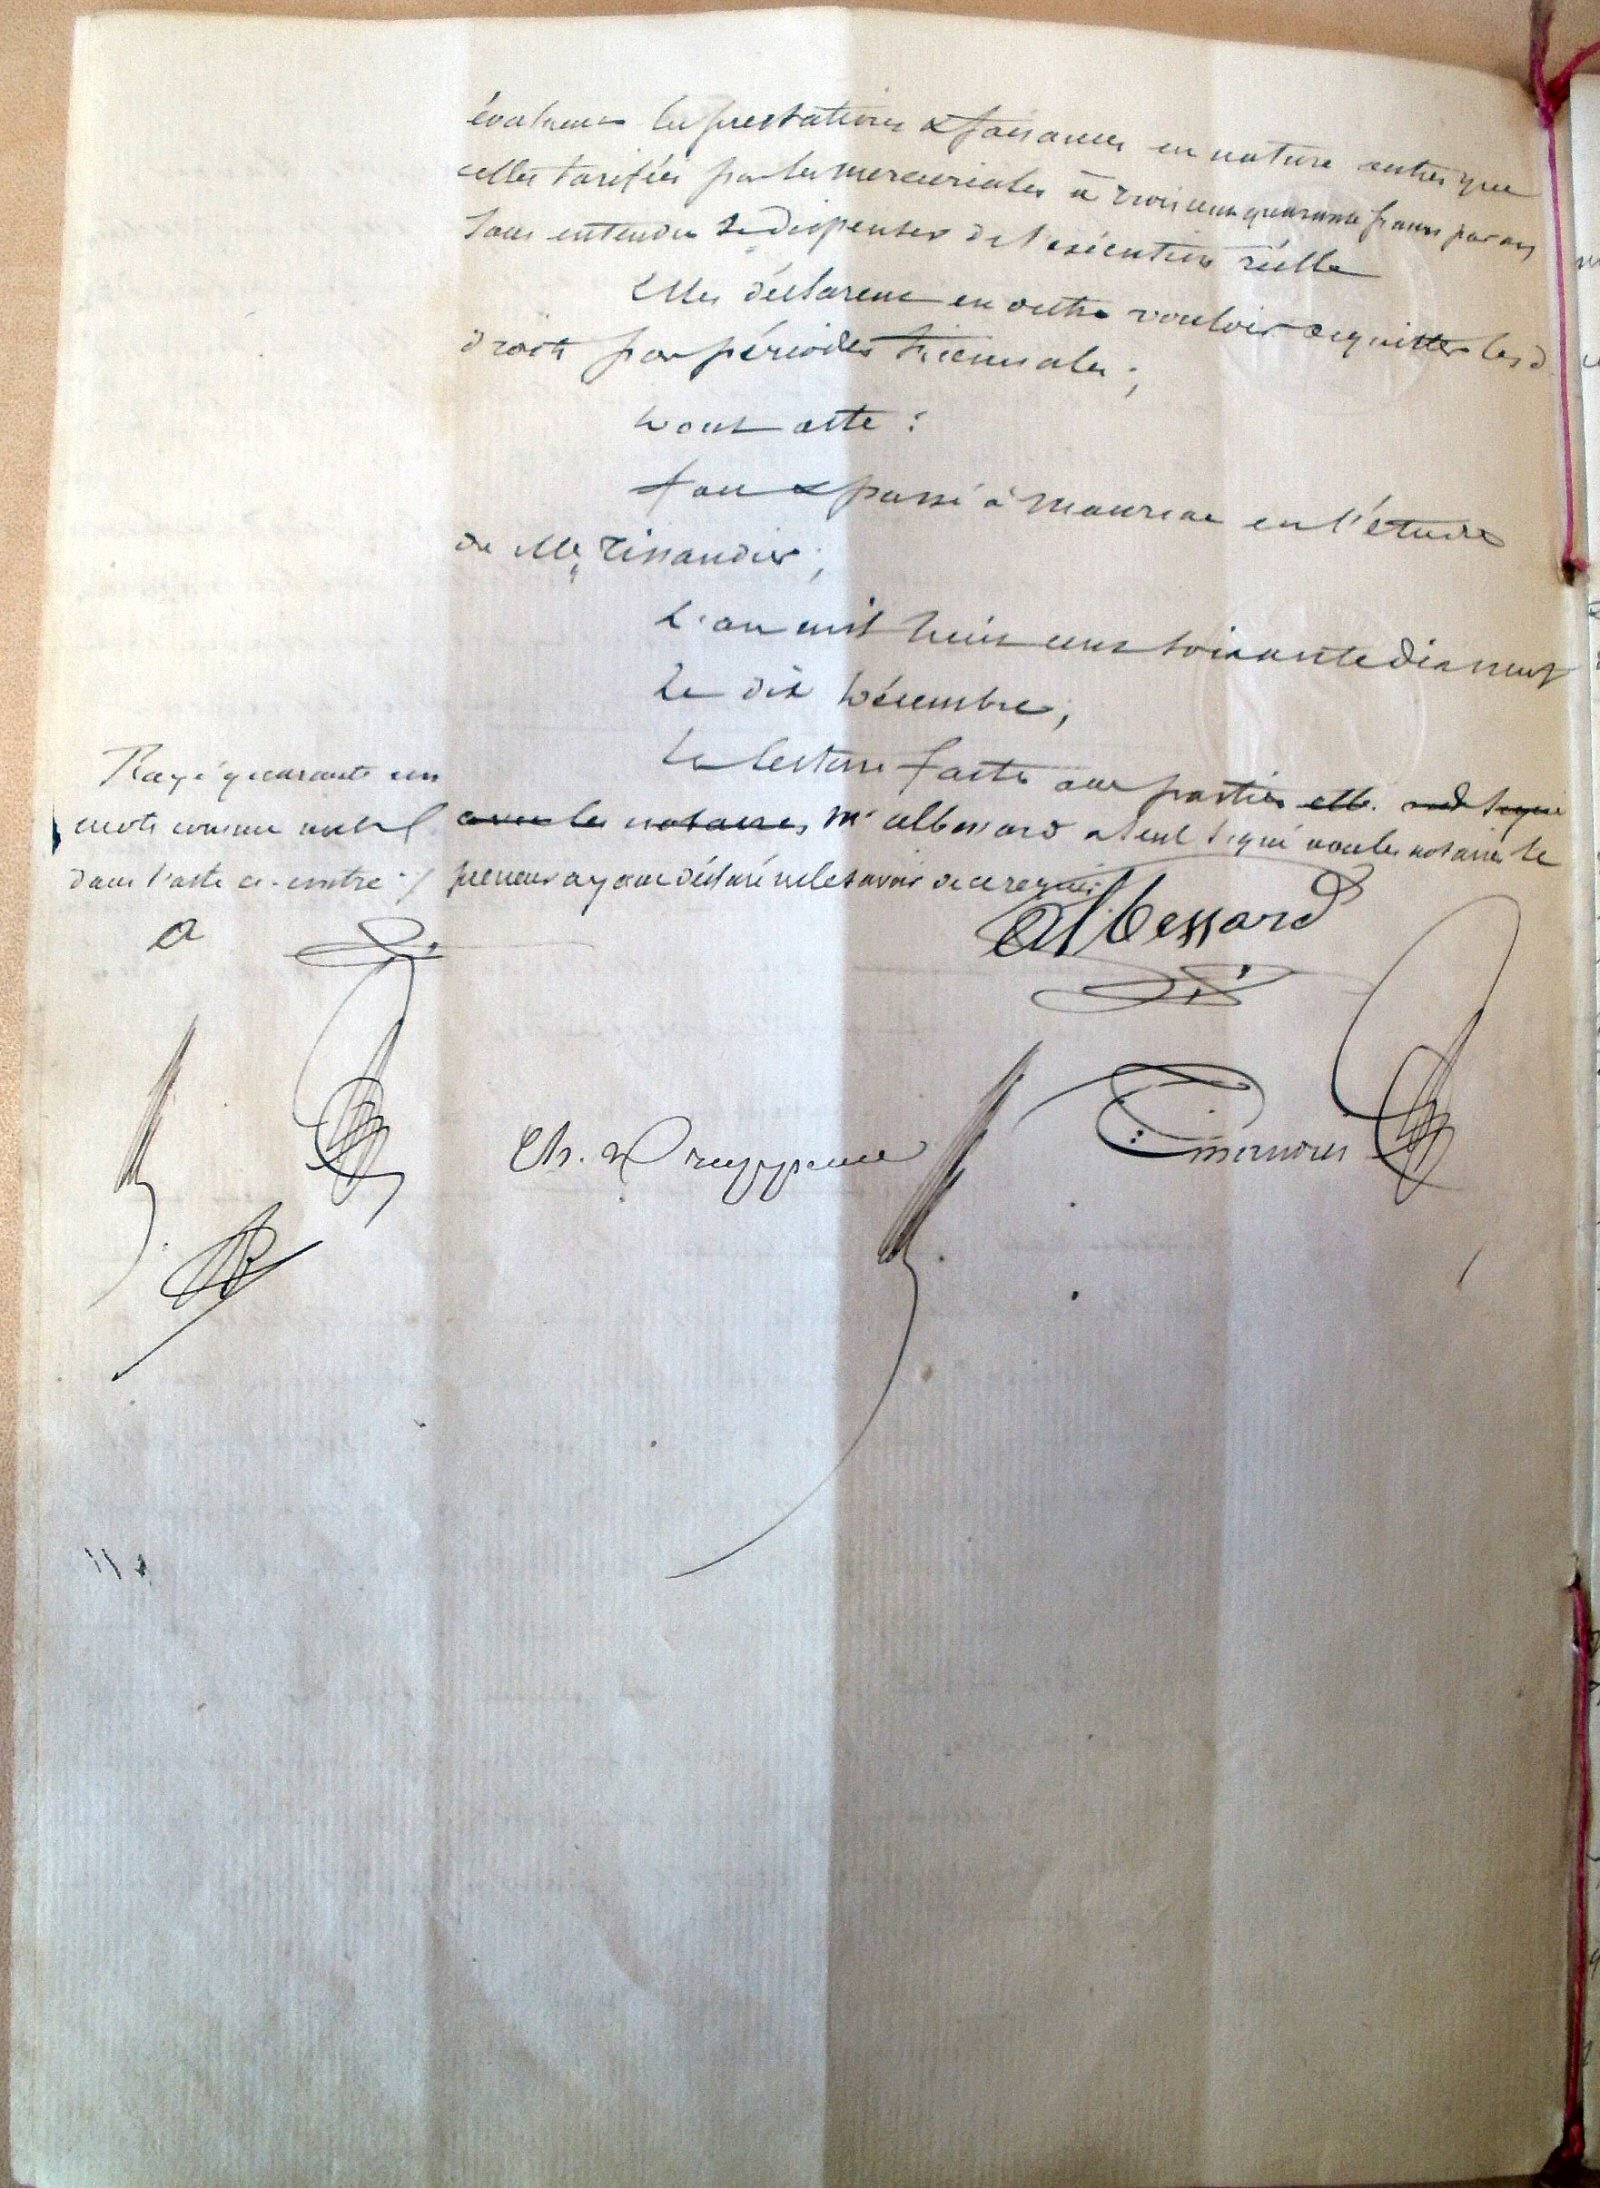 évaluent les prestations & faisances en nature autres que
celles tarifiées par les mercuriales à trois cent quarante francs par an
sans entendre se dispenser de l'exécution réelle
Elles déclarent en outre vouloir acquitter les d.
droits par périodes triennales ;
Dont acte :
fait & passé à Mauriac en l'étude
de Me Tissandier ;
L'an mil huit cent soixante dix neuf
Le dix Décembre ;
La lecture faite aux parties elles ont signé
avec les notaires, Mr albessard a seul signé avec les notaires le
preneur ayant déclaré ne le savoir de ce requis
Rayé quarante un
mots comme nuls
dans l'acte ci-contre ./
a
Albessard
Ch.